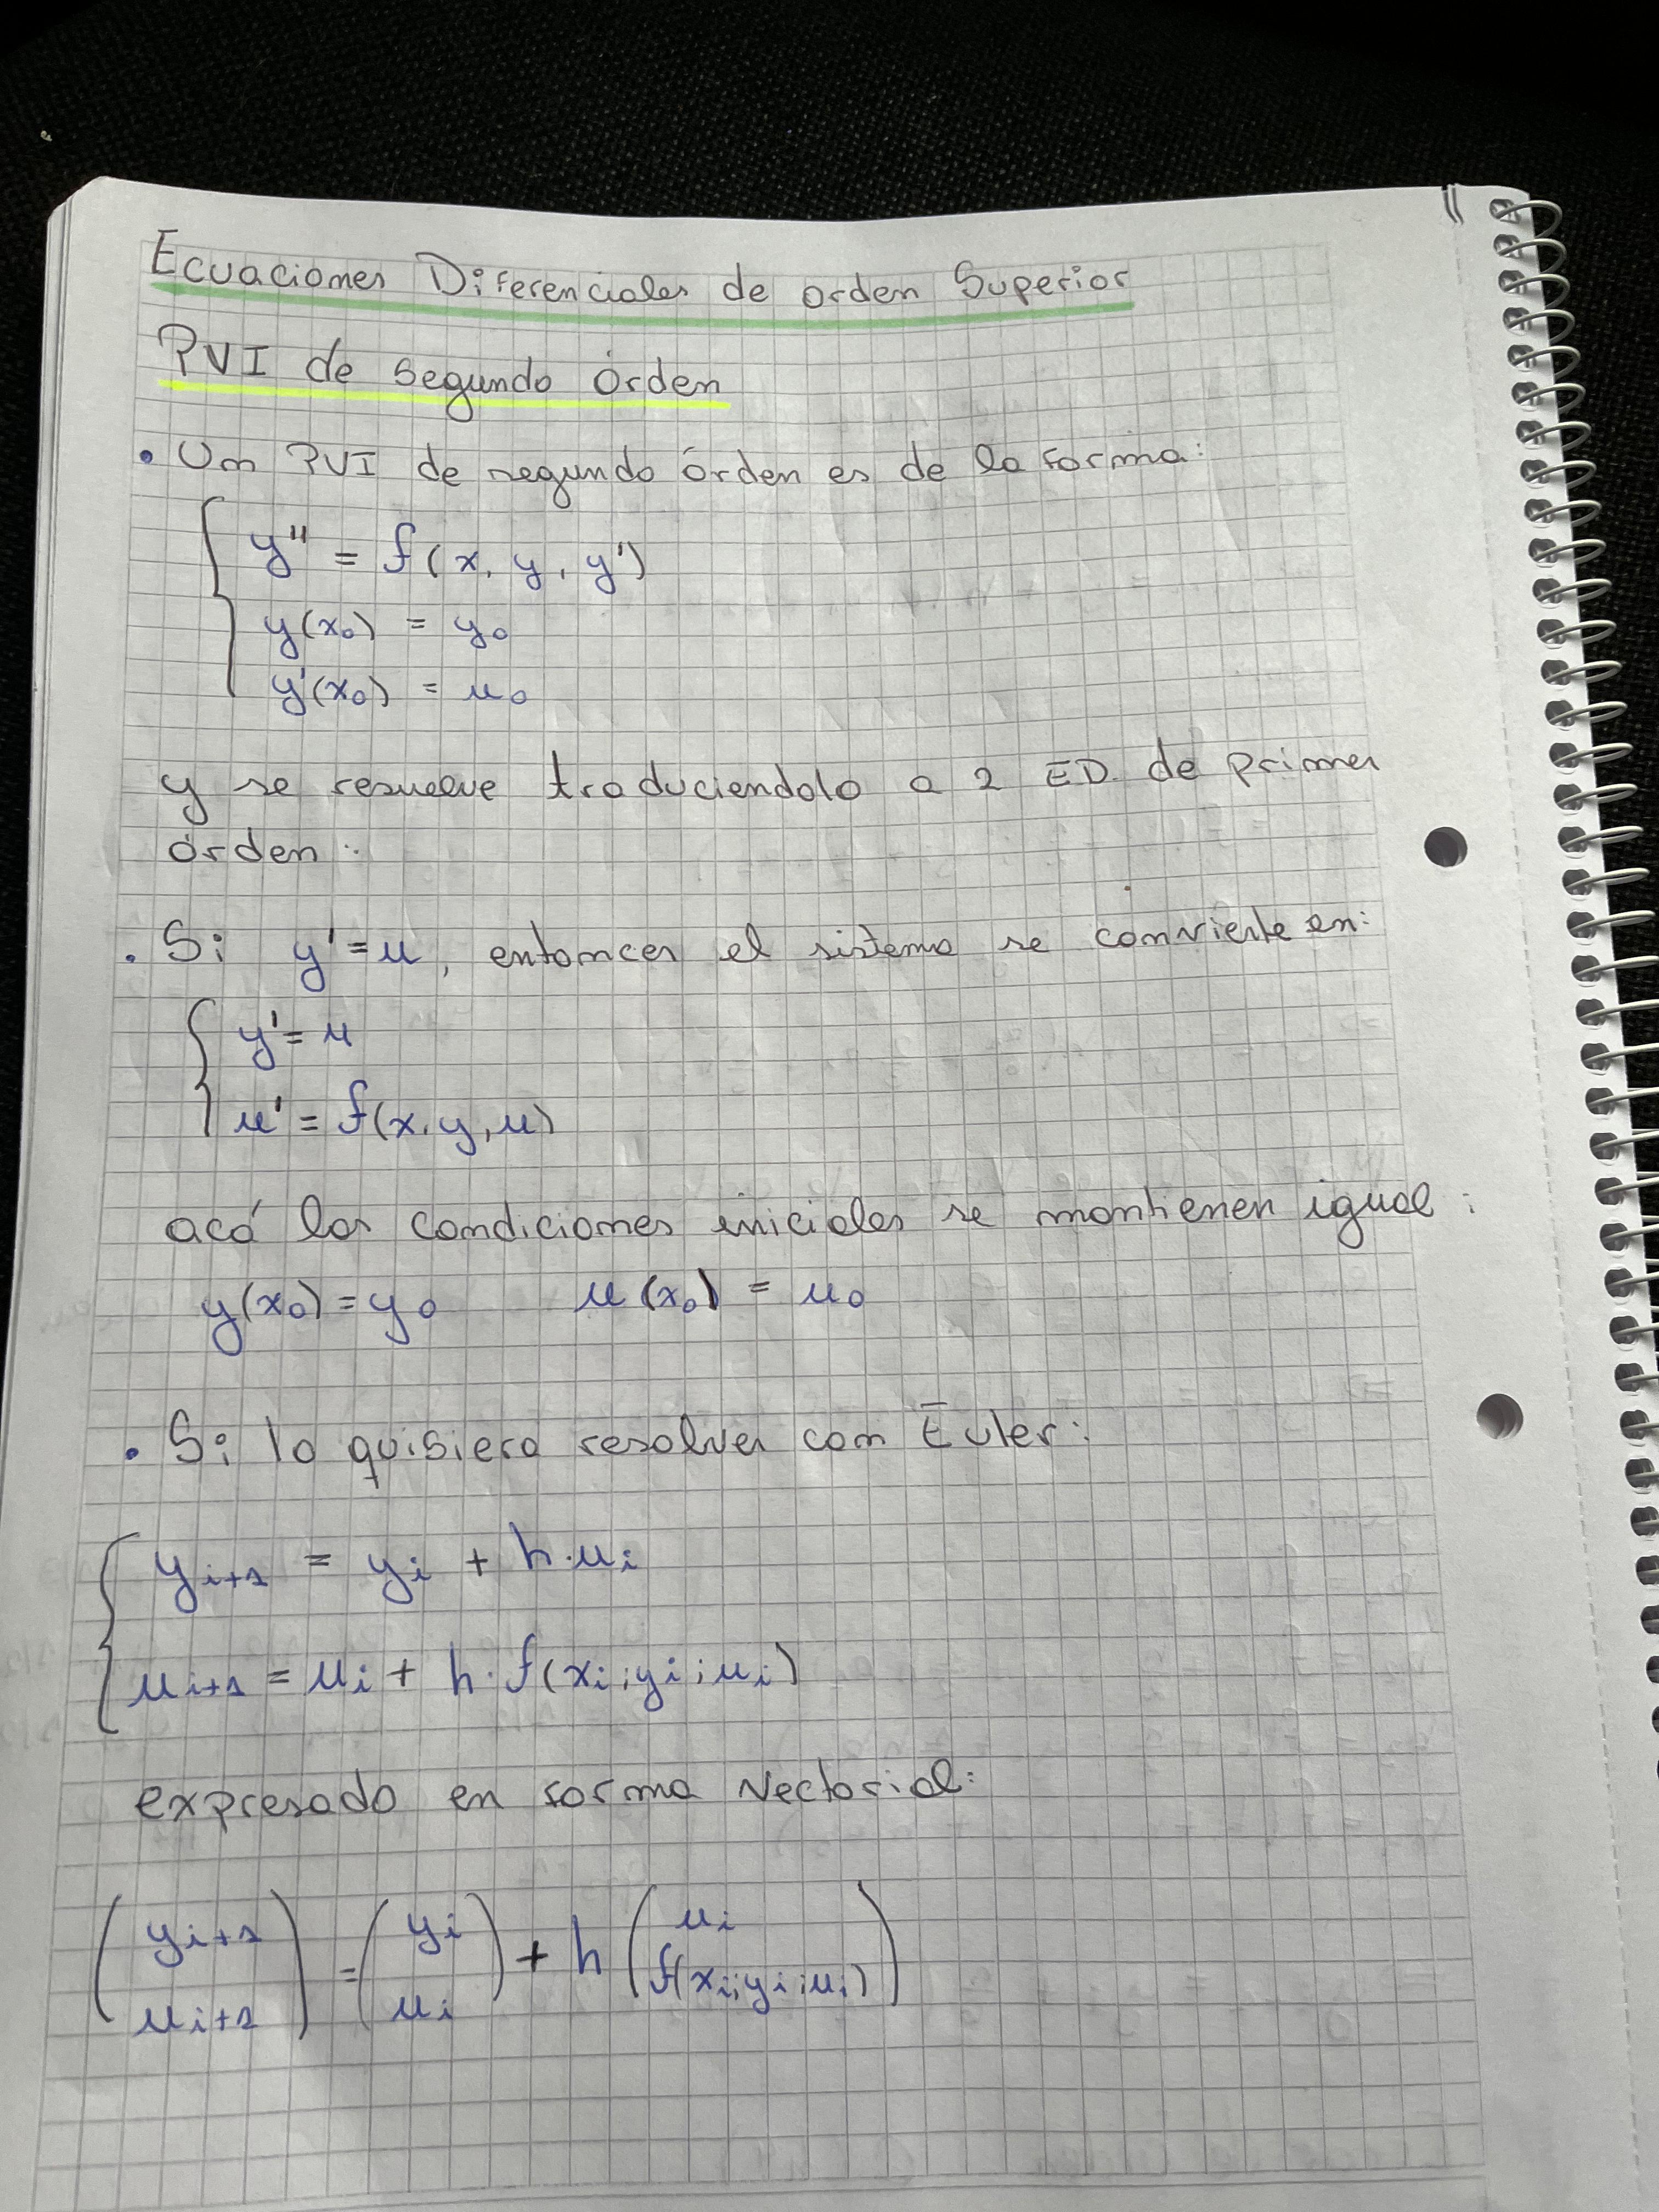 Ecuaciones Diferenciales de orden Superior
PVI de Segundo Órden
• Un PVI de segundo órden es de la forma:
y'' = f(x, y, y')
y(x₀) = y₀
y'(x₀) = u₀
y se resuelve traduciendolo a 2 ED. de primer
órden:
• Si y' = u, entonces el sistema se convierte en:
y' = u
u' = f(x, y, u)
acá las condiciones iniciales se mantienen igual:
y(x₀) = y₀ u(x₀) = u₀
• Si lo quisiera resolver con Euler:
yᵢ₊₁ = yᵢ + h·uᵢ
uᵢ₊₁ = uᵢ + h·f(xᵢ; yᵢ; uᵢ)
expresado en forma vectorial:
(yᵢ₊₁) = (yᵢ) + h (uᵢ)
(uᵢ₊₁) (uᵢ) (f(xᵢ; yᵢ; uᵢ))